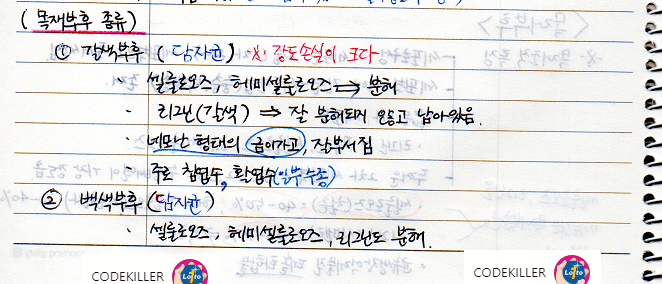 (목재부후 종류)
① 갈색부후 (담자균) ※ 강도손실이 크다
· 셀룰로오즈, 헤미셀룰로오즈 ⇒ 분해
· 리그닌(갈색) ⇒ 잘 분해되지 않고 남아있음.
· 네모난 형태의 금이가고, 잘부서짐
· 주로 침엽수, 활엽수(일부수종)
② 백색부후 (담자균)
· 셀룰로오즈, 헤미셀룰로오즈, 리그닌도 분해.
CODEKILLER Lotto CODEKILLER Lotto